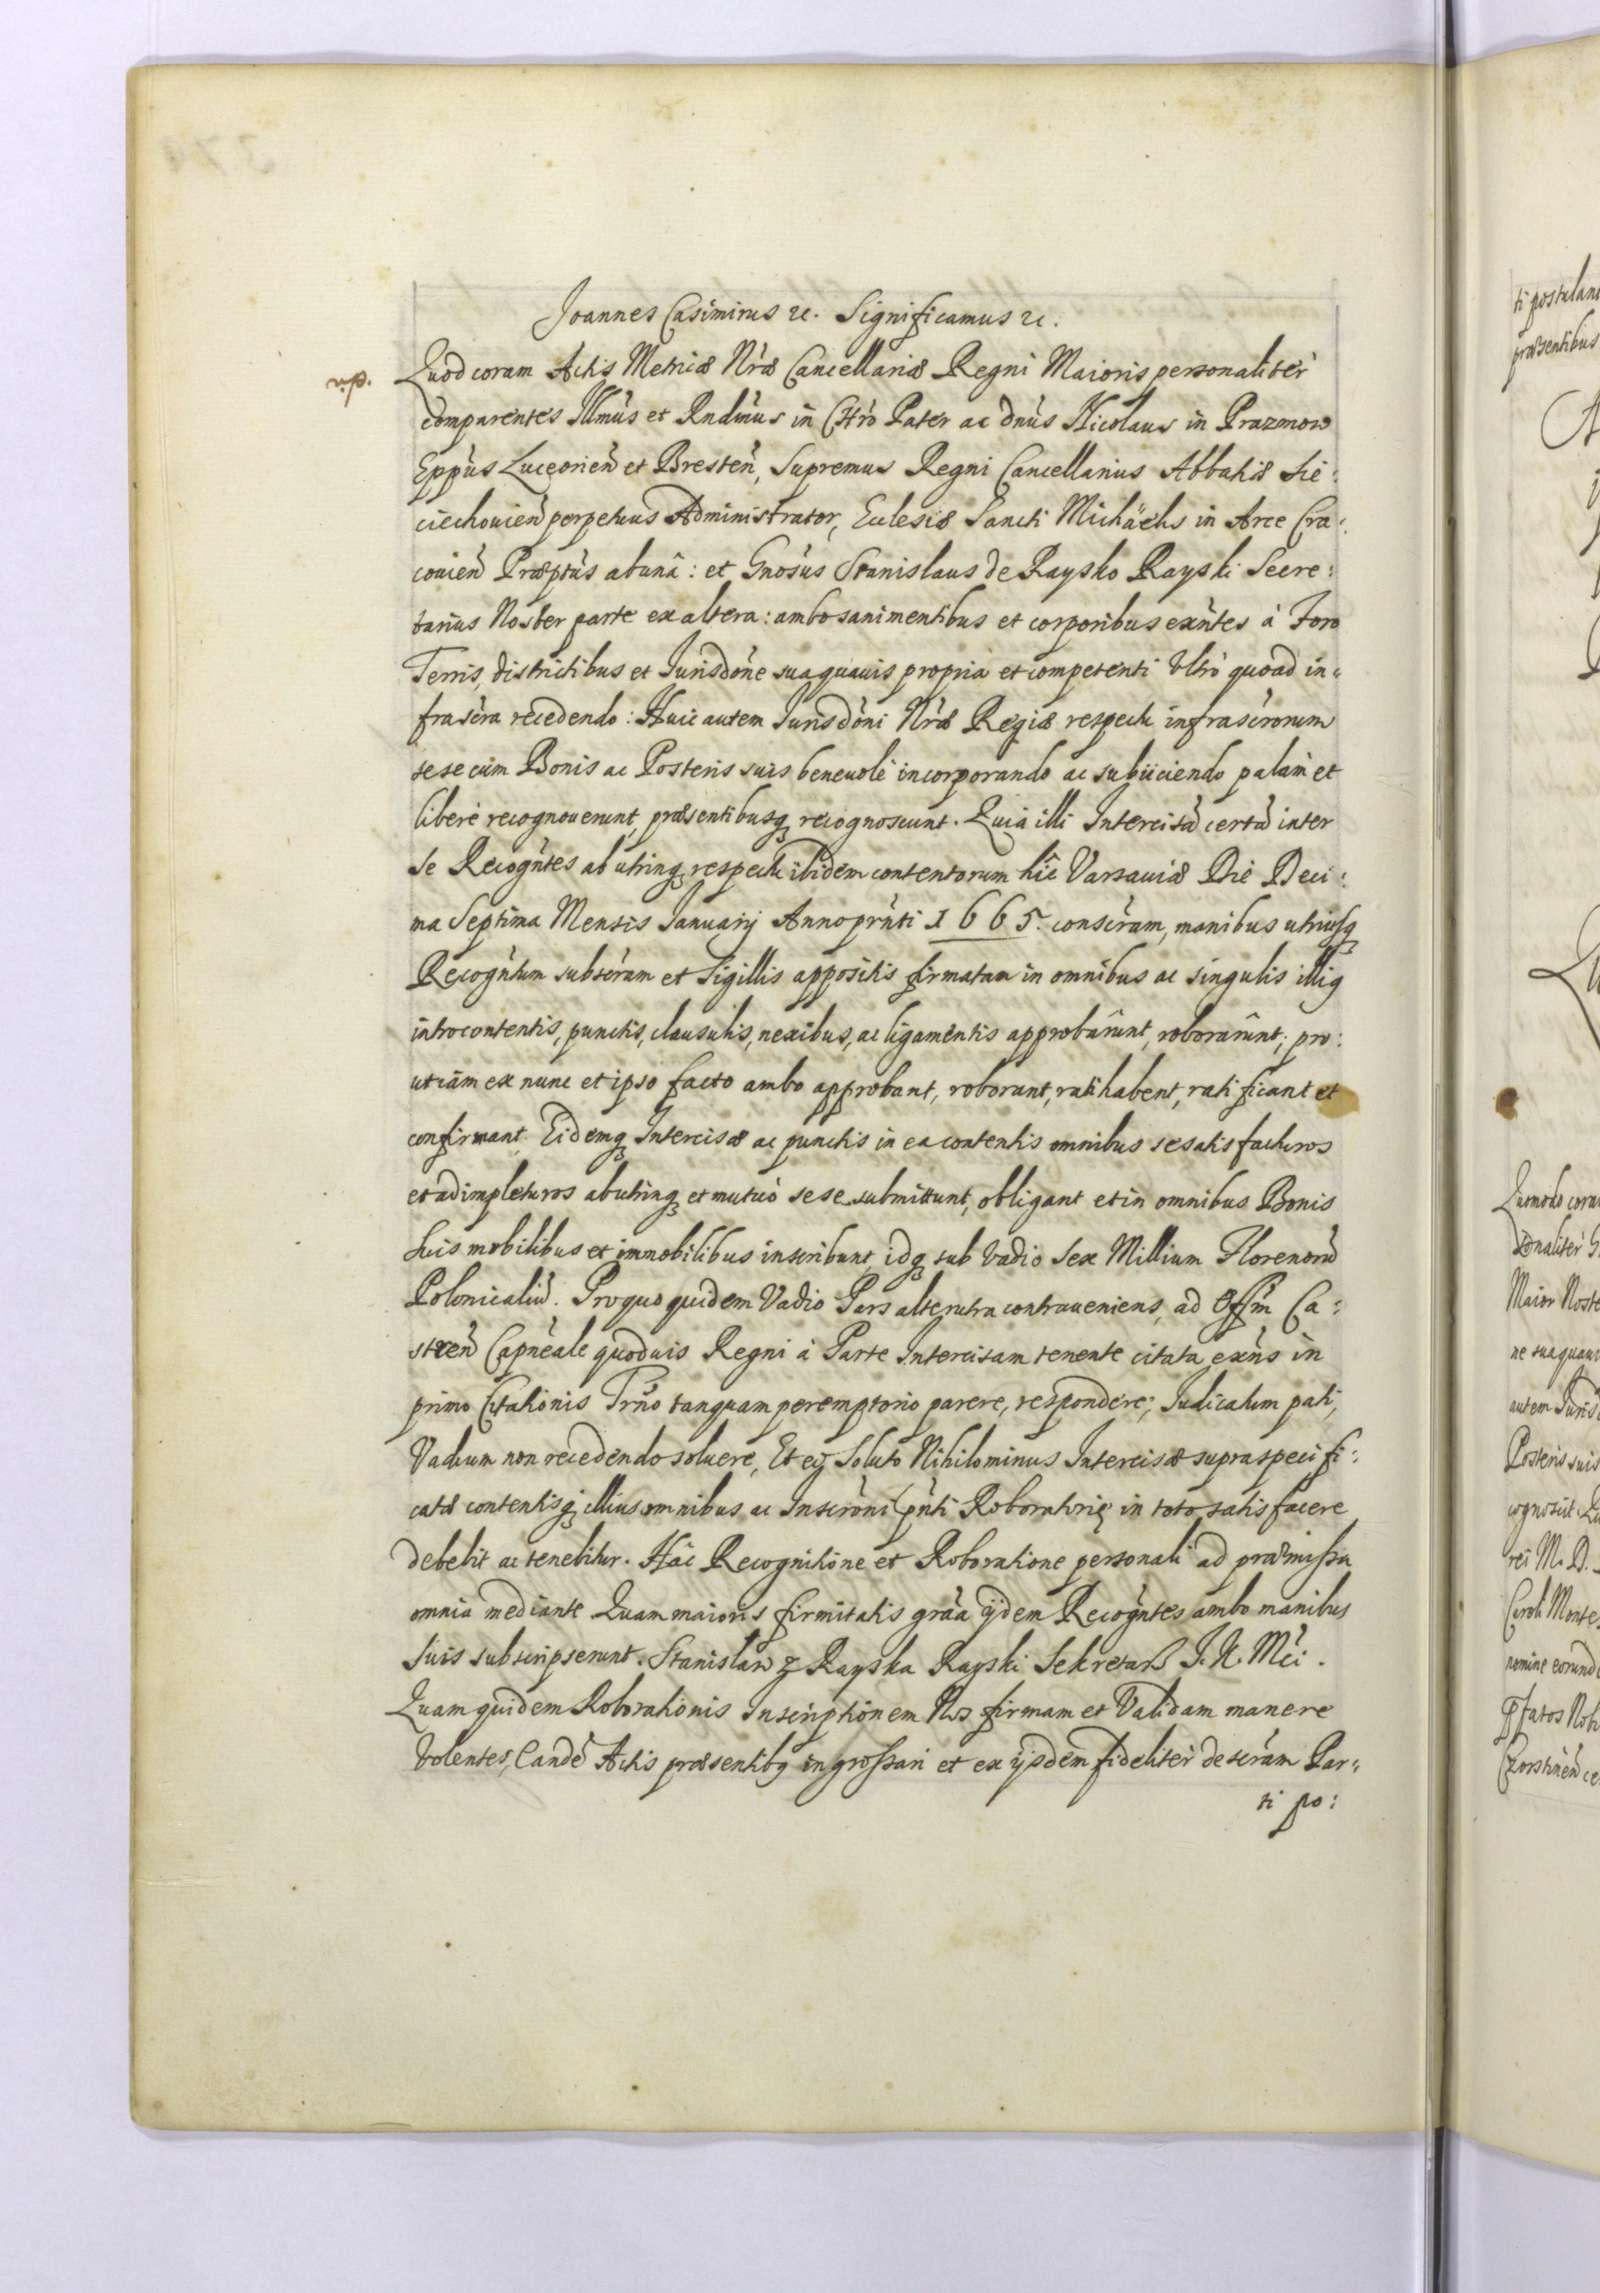 Joannes Casimirus etc. Significamus etc.
v.p. Quod coram Actis Metricæ Nræ Cancellariæ Regni Maioris personalitèr
comparentes Illmus et Rndmus in Chrò Pater ac dnus Nicolaus in Prazmow
Eppus Luceorien et Bresten, Supremus Regni Cancellarius Abbatiæ Sie:
ciechouien perpetuus Administrator, Ecclesiæ Sancti Michaelis in Arce Cra:
couien Præptus ab unâ: et Gnosus Stanislaus de Raysko Rayski Secre:
tarius Noster parte ex altera: ambo sani mentibus et corporibus exntes à Foro
Terris, districtibus et Jurisdone sua quauis propria et competenti Vltrò quoad in-
frascra recedendo: Huic autem Jurisdoni Nræ Regiæ respectu infrascrorum
sese cum Bonis ac Posteris suis beneuolè incorporando ac subiiciendo palàm et
liberè recognouerunt, præsentibusq recognoscunt. Quia illi Intercisã certã inter
Se Recogntes ab utrinq respectu ibidem contentorum hîc Varsauiæ Die Deci:
ma Septima Mensis Januarij Anno prnti 1665. conscram, manibus utriusq
Recogntum subscram et Sigillis appositis firmatam in omnibus ac singulis illiq
introcontentis, punctis, clausulis, nexibus, ac ligamentis approbârunt, roborârunt; pro:
ut iàm ex nunc et ipso facto ambo approbant, roborant, ratihabent, ratificant et
confirmant. Eidemq Intercisæ ac punctis in ea contentis omnibus se satisfacturos
et adimpleturos ab utrinq et mutuò sese submittunt, obligant et in omnibus Bonis
Suis mobilibus et immobilibus inscribunt, idq sub Vadio Sex Millium Florenorũ
Polonicaliũ. Pro quo quidem Vadio Pars alterutra contraueniens, ad Offm Ca:
stren Capneale quoduis Regni à Parte Intercisam tenente citata exns in
primo Citationis Trno tanquam peremptorio parere, respondere; Judicatum pati,
Vadium non recedendo soluere, Et eo Soluto Nihilominus Intercisæ supraspecifi:
catæ contentisq illius omnibus ac Inscrôni pnti Roboratoriæ in toto satisfacere
debebit ac tenebitur. Hâc Recognitione et Roboratione personali ad præmissa
omnia mediante Quam maioris firmitatis graa ijdem Recogntes ambo manibus
Suis subscripserunt. Stanislaw z Rayska Rayski Sekretarz J. K. Mci.
Quam quidem Roborationis Inscriptionem Nos firmam et Validam manere
Volentes, Eandẽ Actis præsentibq ingrossari et ex ijsdem fidelitèr descràm Par-
ti po: